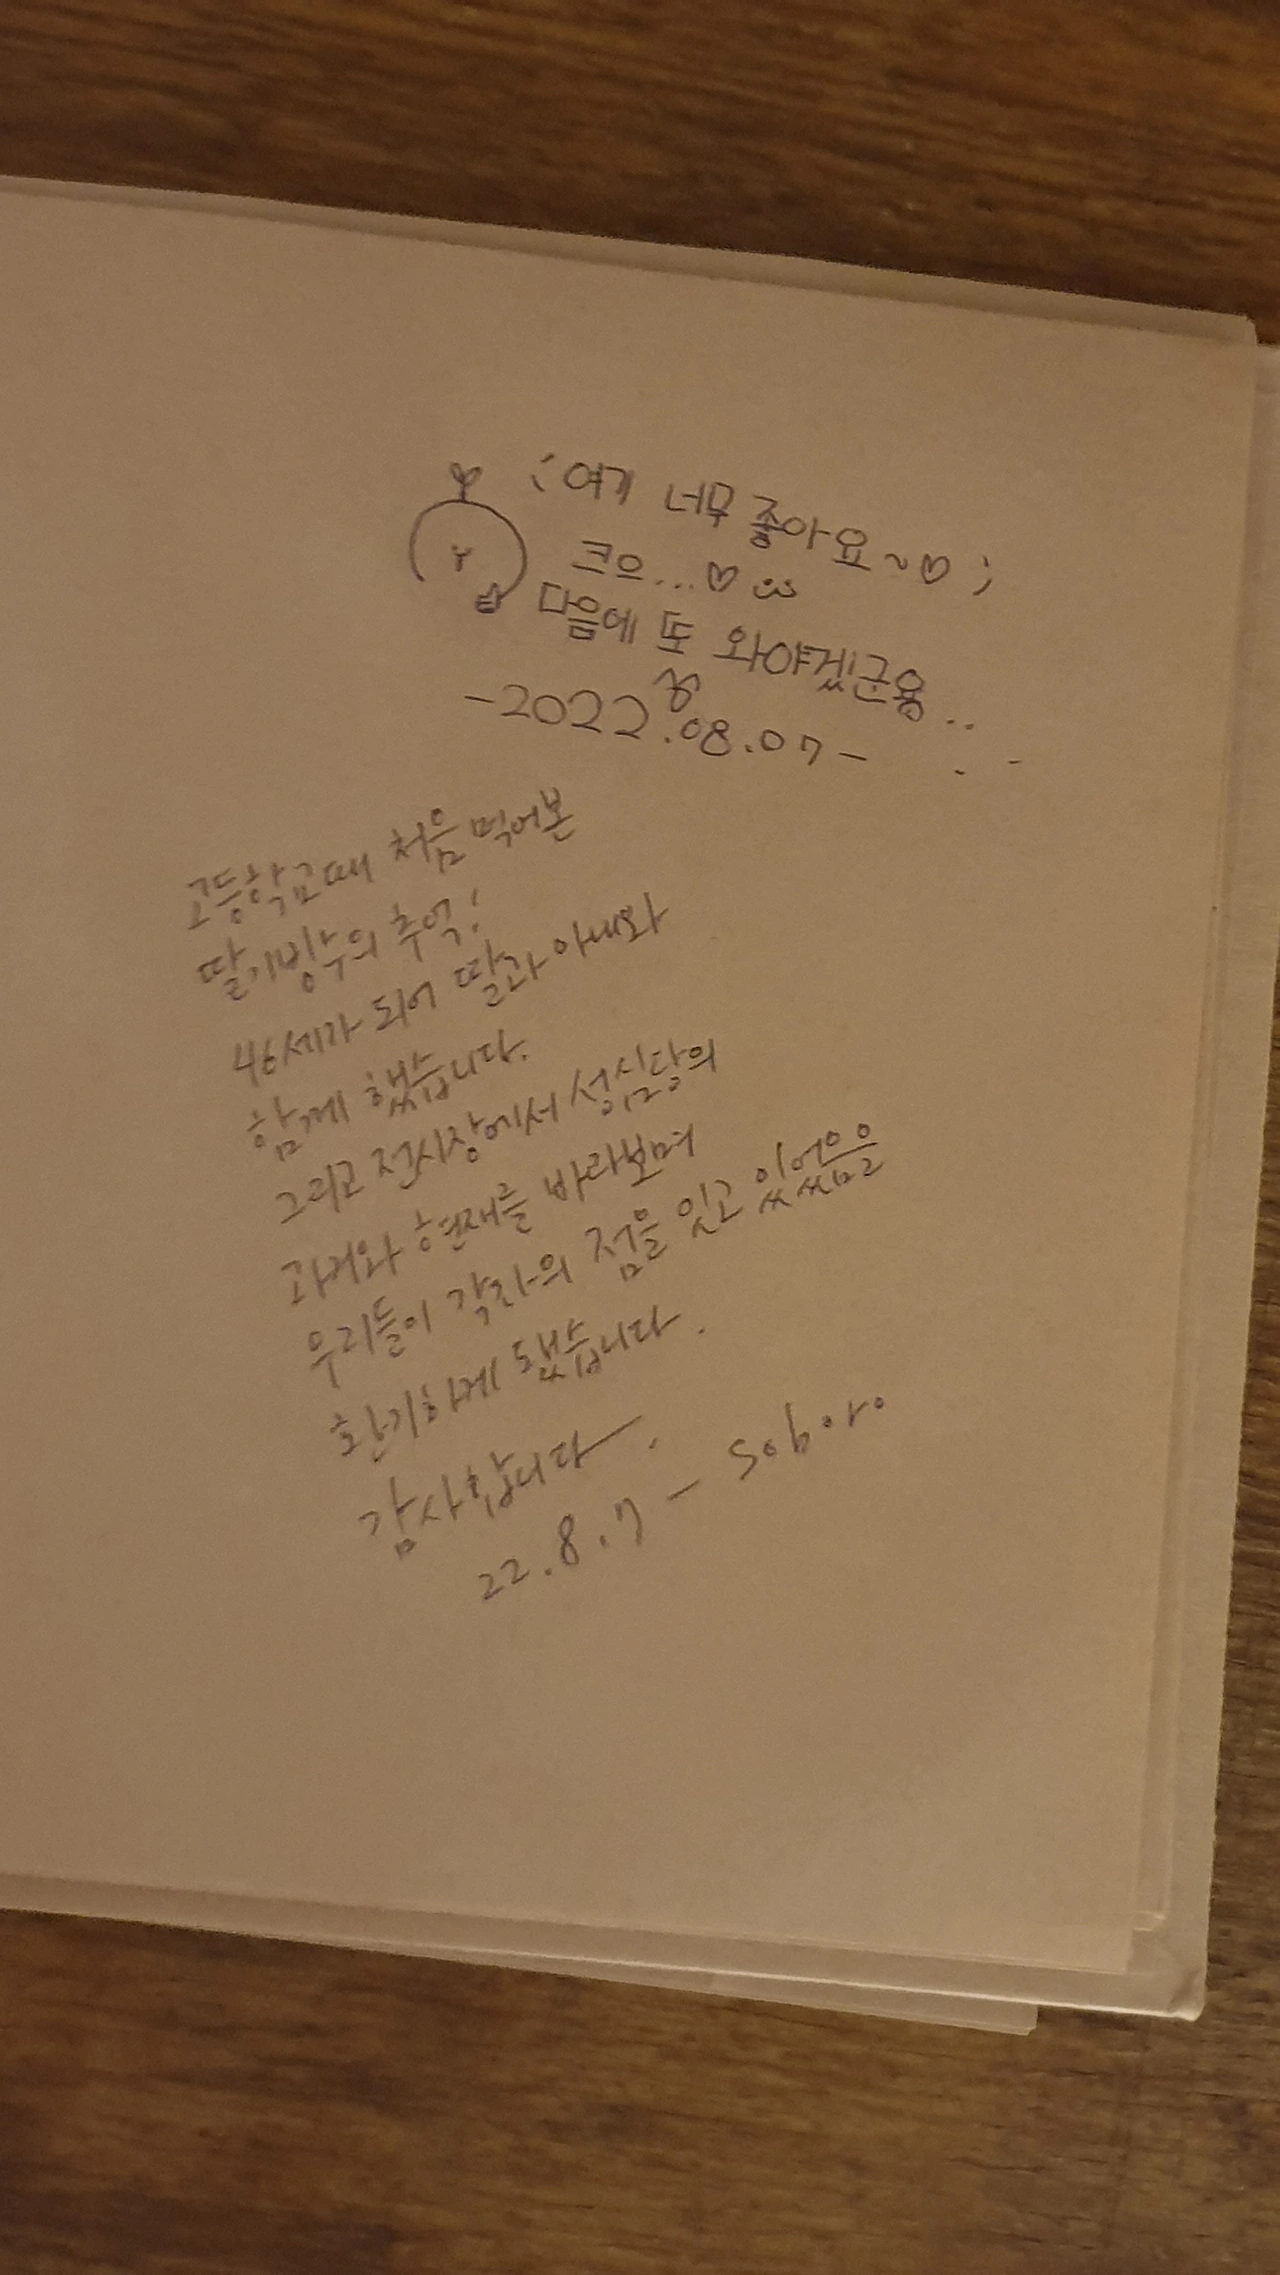 ; 여기 너무 좋아요~♡ ;
크으...♡
다음에 또 와야겠군용..
-2022.08.07-
고등학교때 처음 먹어본
딸기빙수의 추억!
46세가 되어 딸과 아내와
함께 했습니다.
그리고 전시장에서 성심당의
과거와 현재를 바라보며
우리들이 각자의 점을 잇고 있었음을
환기하게 됐습니다.
감사합니다.
22.8.7 - soboro